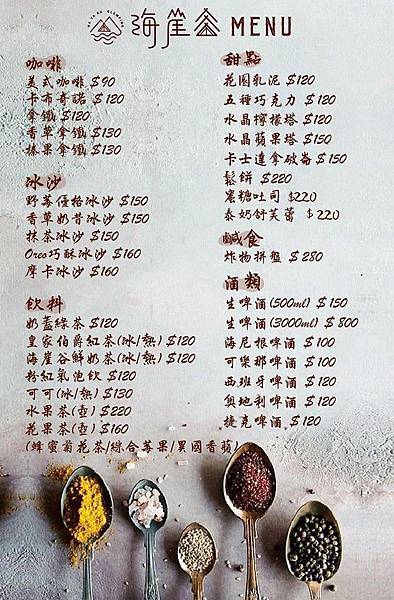 海崖谷 MENU
咖啡
美式咖啡 $90
卡布奇諾 $120
拿鐵 $120
香草拿鐵 $130
榛果拿鐵 $130
冰沙
野莓優格冰沙 $150
香草奶昔冰沙 $150
抹茶冰沙 $150
Oreo巧酥冰沙 $160
摩卡冰沙 $160
飲料
奶蓋綠茶 $120
皇家伯爵紅茶(冰/熱) $120
海崖谷鮮奶茶(冰/熱) $120
粉紅氣泡飲 $120
可可(冰/熱) $130
水果茶(壺) $220
花果茶(壺) $160
(蜂蜜菊花茶/綜合莓果/異國香蘋)
甜點
花園乳泥 $120
五種巧克力 $120
水晶檸檬塔 $120
水晶蘋果塔 $150
卡士達拿破崙 $150
鬆餅 $220
蜜糖吐司 $220
泰奶舒芙蕾 $220
鹹食
炸物拼盤 $280
酒類
生啤酒(500ml) $150
生啤酒(3000ml) $800
海尼根啤酒 $100
可樂那啤酒 $100
西班牙啤酒 $120
奧地利啤酒 $120
捷克啤酒 $120